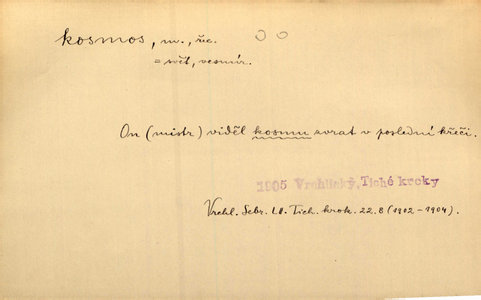 kosmos, m., řec.
= svět, vesmír.
On (mistr) viděl kosmu zvrat v poslední křeči.
1905 Vrchlický, Tiché kroky
Vrchl. Sebr. LII. Tich. krok. 22.8 (1902-1904).